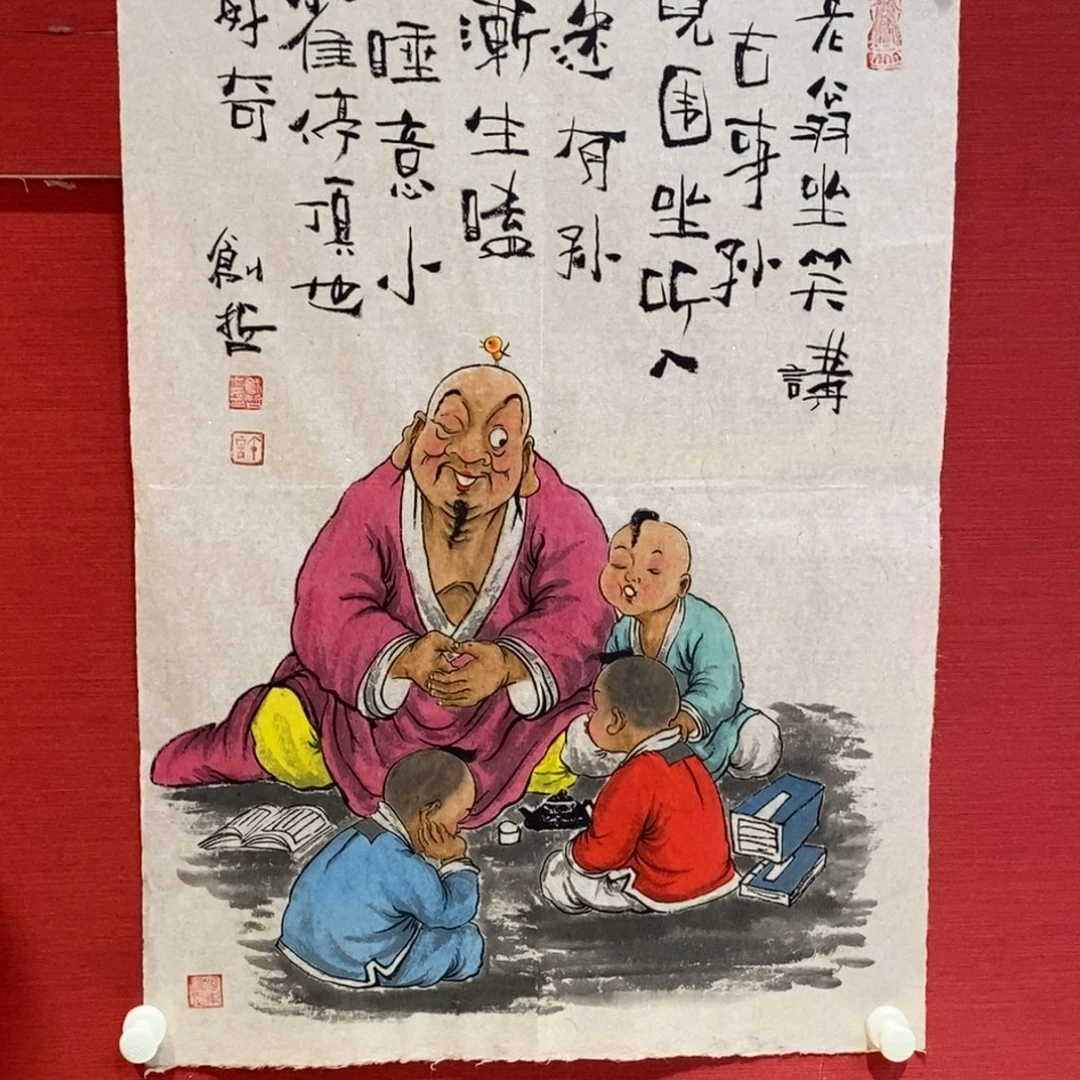 老翁坐笑講
古事孙
兒围坐听入
迷有孙
漸生瞌
睡意小
雀停頂也
好奇
創哲